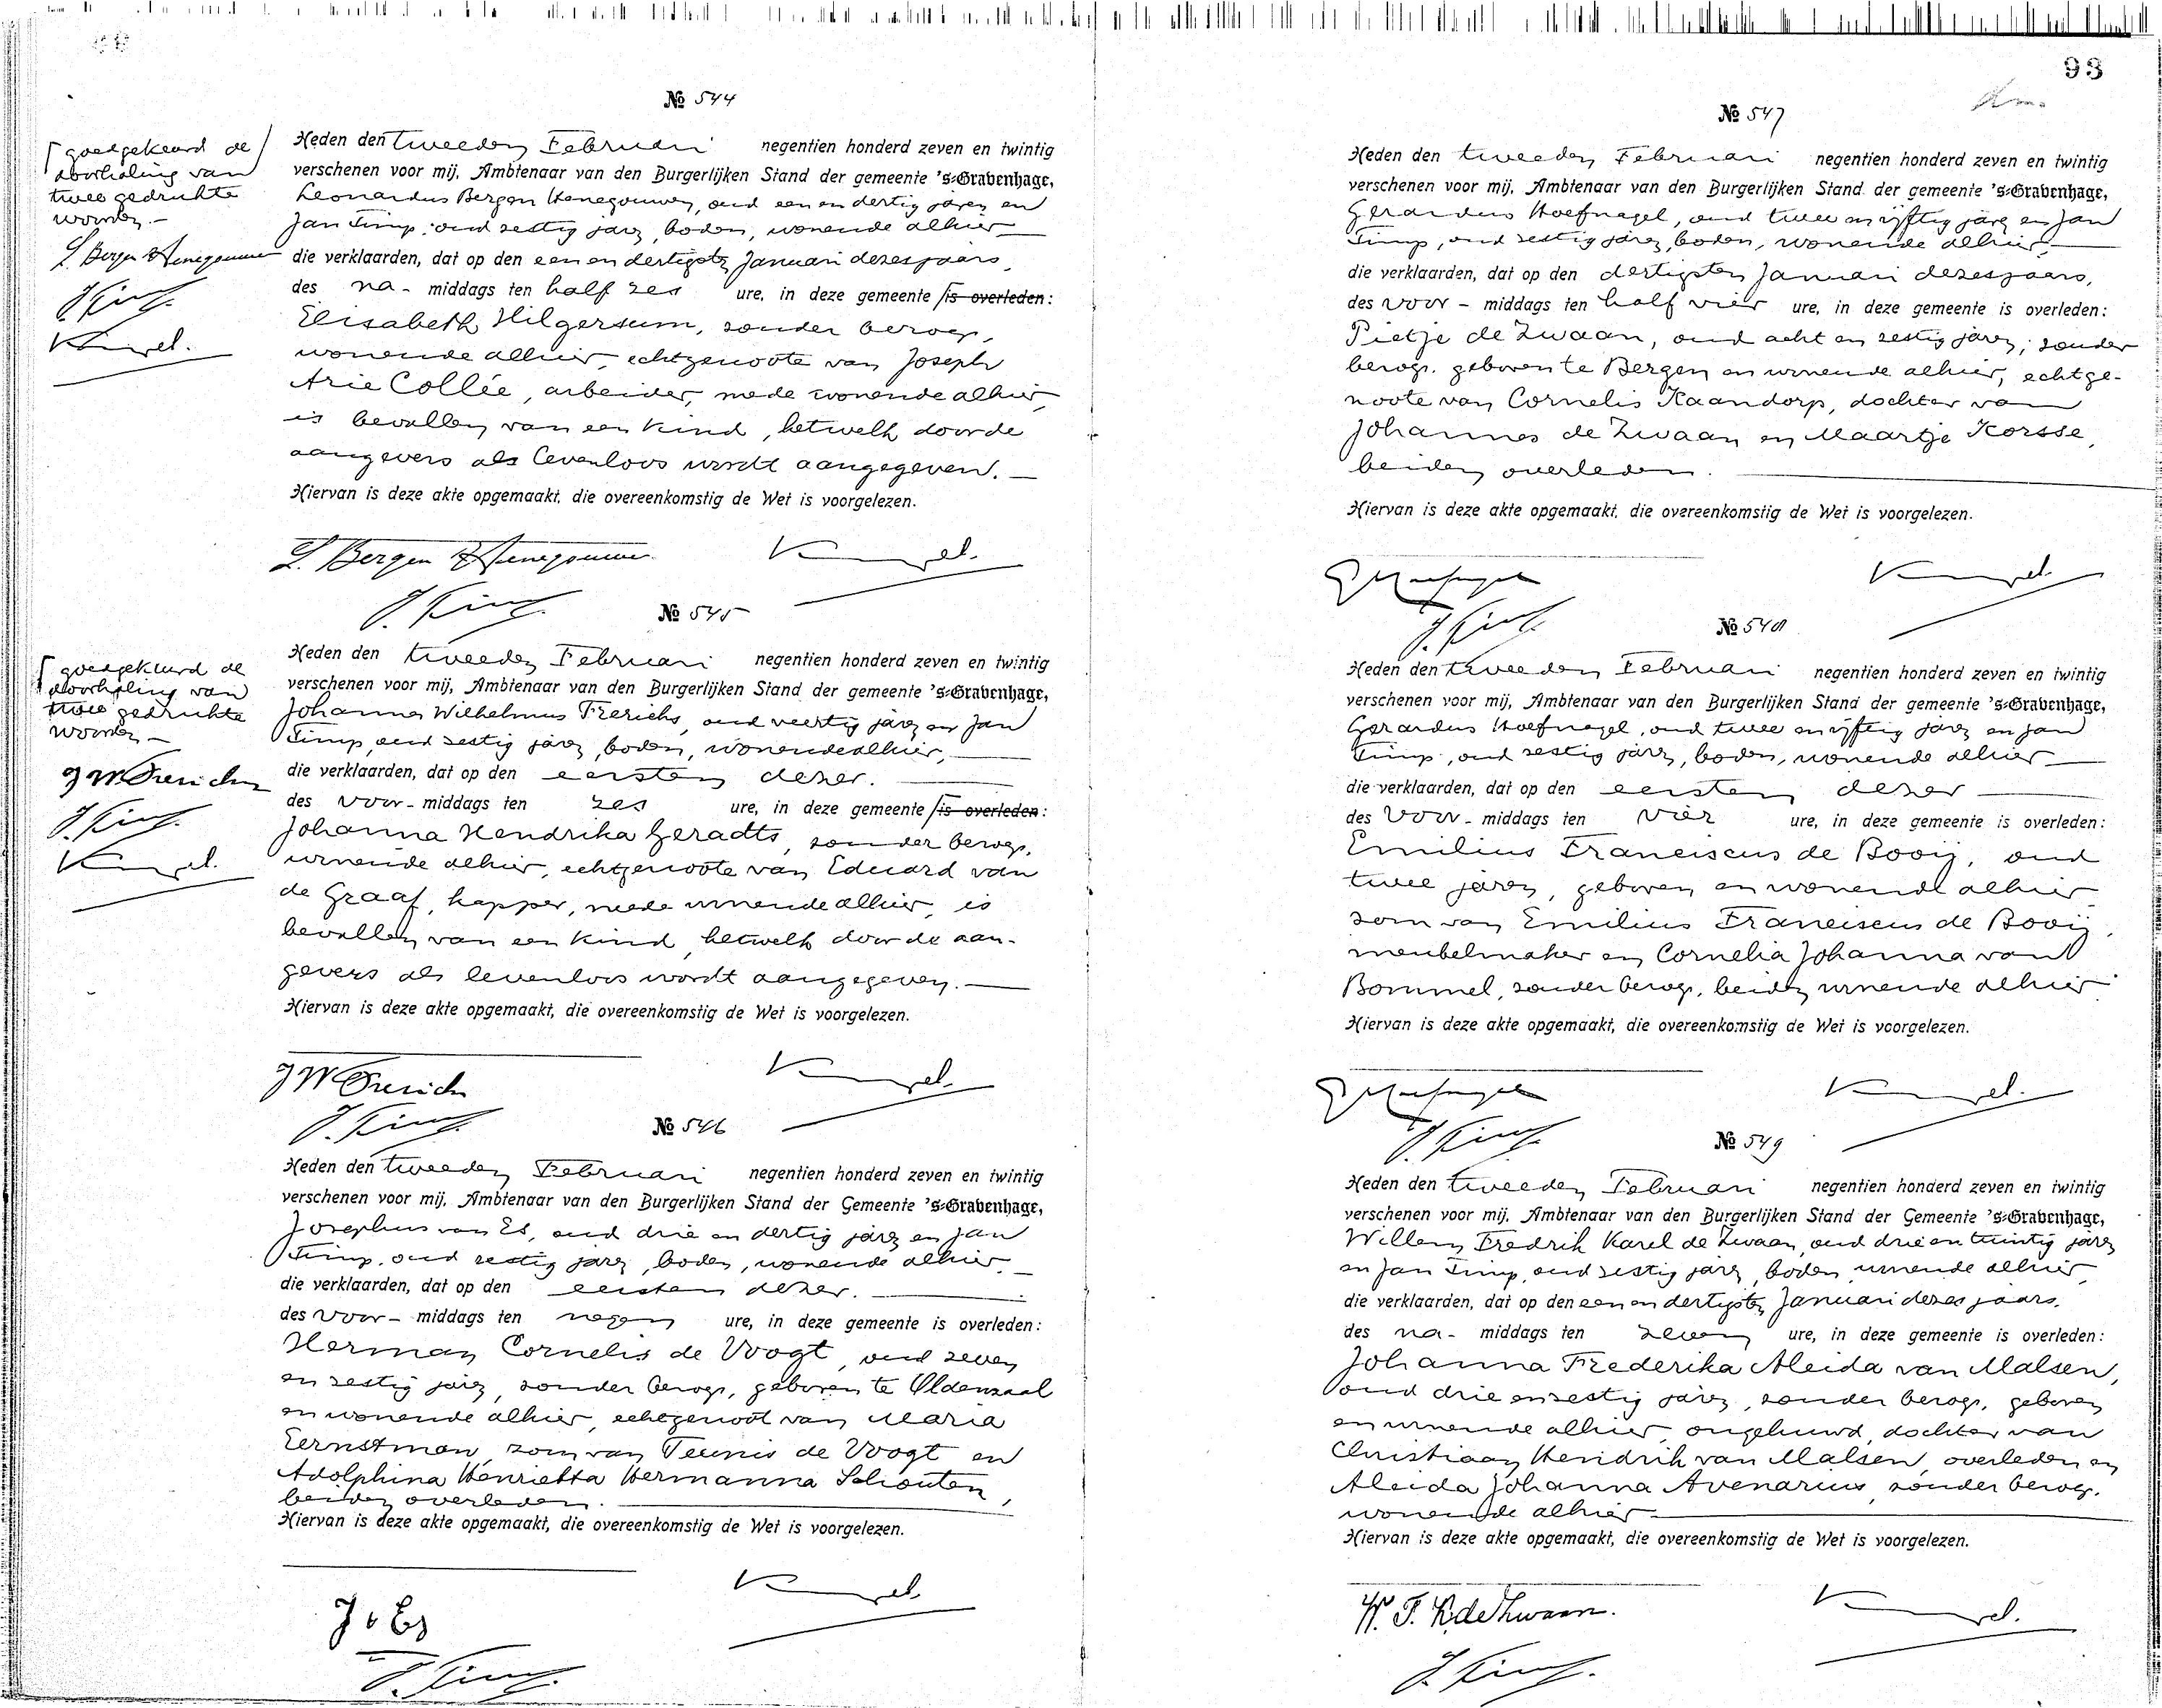 № 544
Heden den tweeden Februari negentien honderd zeven en twintig
verschenen voor mij, Ambtenaar van den Burgerlijken Stand der gemeente 's-Gravenhage,
Leonardus Bergen Henegouwen, oud een en dertig jaren en
Jan Timp, oud zestig jaren, boden, wonende alhier
die verklaarden, dat op den een en dertigsten Januari dezes jaars,
des na- middags ten half zes ure, in deze gemeente is overleden:
Elisabeth Hilgersum, zonder beroep,
wonende alhier, echtgenoote van Joseph
Arie Collée, arbeider, mede wonende alhier,
is bevallen van een kind, hetwelk door de
aangevers als levenloos wordt aangegeven.
Hiervan is deze akte opgemaakt, die overeenkomstig de Wet is voorgelezen.
L. Bergen Henegouwen
J. Timp.
goedgekeurd de
doorhaling van
twee gedrukte
woorden.
L. Bergen Henegouwen
J. Timp.
№ 545
Heden den tweeden Februari negentien honderd zeven en twintig
verschenen voor mij, Ambtenaar van den Burgerlijken Stand der gemeente 's-Gravenhage,
Johannes Wilhelmus Frerichs, oud veertig jaren en Jan
Timp, oud zestig jaren, boden, wonende alhier,
die verklaarden, dat op den eersten dezer.
des voor- middags ten zes ure, in deze gemeente is overleden:
Johanna Hendrika Geradts, zonder beroep,
wonende alhier, echtgenoote van Eduard van
de Graaf, kapper, mede wonende alhier, is
bevallen van een kind, hetwelk door de aan-
gevers als levenloos wordt aangegeven.
Hiervan is deze akte opgemaakt, die overeenkomstig de Wet is voorgelezen.
J W Frerichs
J. Timp.
goedgekeurd de
doorhaling van
twee gedrukte
woorden
J W Frerichs
J. Timp.
№ 546
Heden den tweeden Februari negentien honderd zeven en twintig
verschenen voor mij, Ambtenaar van den Burgerlijken Stand der Gemeente 's-Gravenhage,
Josephus van Es, oud drie en dertig jaren en Jan
Timp, oud zestig jaren, boden, wonende alhier,
die verklaarden, dat op den eersten dezer.
des voor- middags ten negen ure, in deze gemeente is overleden:
Herman Cornelis de Voogt, oud zeven
en zestig jaren, zonder beroep, geboren te Oldenzaal
en wonende alhier, echtgenoot van Maria
Eernstman, zoon van Teunis de Voogt en
Adolphina Henrietta Hermanna Schouten,
beiden overleden.
Hiervan is deze akte opgemaakt, die overeenkomstig de Wet is voorgelezen.
J v Es
J. Timp.
93
№ 547
Heden den tweeden Februari negentien honderd zeven en twintig
verschenen voor mij, Ambtenaar van den Burgerlijken Stand der gemeente 's-Gravenhage,
Gerardus Hoefnagel, oud twee en vijftig jaren en Jan
Timp, oud zestig jaren, boden, wonende alhier
die verklaarden, dat op den dertigsten Januari dezes jaars,
des voor- middags ten half vier ure, in deze gemeente is overleden:
Pietje de Zwaan, oud acht en zestig jaren, zonder
beroep, geboren te Bergen en wonende alhier, echtge-
noote van Cornelis Kaandorp, dochter van
Johannes de Zwaan en Maartje Korsse,
beiden overleden.
Hiervan is deze akte opgemaakt, die overeenkomstig de Wet is voorgelezen.
G Hoefnagel
J. Timp.
№ 548
Heden den tweeden Februari negentien honderd zeven en twintig
verschenen voor mij, Ambtenaar van den Burgerlijken Stand der gemeente 's-Gravenhage,
Gerardus Hoefnagel, oud twee en vijftig jaren en Jan
Timp, oud zestig jaren, boden, wonende alhier
die verklaarden, dat op den eersten dezer
des voor- middags ten vier ure, in deze gemeente is overleden:
Emilius Franciscus de Booij, oud
twee jaren, geboren en wonende alhier
zoon van Emilius Franciscus de Booij,
meubelmaker en Cornelia Johanna van
Bommel, zonder beroep, beiden wonende alhier
Hiervan is deze akte opgemaakt, die overeenkomstig de Wet is voorgelezen.
G Hoefnagel
J. Timp.
№ 549
Heden den tweeden Februari negentien honderd zeven en twintig
verschenen voor mij, Ambtenaar van den Burgerlijken Stand der Gemeente 's-Gravenhage,
Willem Fredrik Karel de Zwaan, oud drie en twintig jaren
en Jan Timp, oud zestig jaren, boden, wonende alhier
die verklaarden, dat op den een en dertigsten Januari dezes jaars,
des na- middags ten zeven ure, in deze gemeente is overleden:
Johanna Frederika Aleida van Malsen,
oud drie en zestig jaren, zonder beroep, geboren
en wonende alhier, ongehuwd, dochter van
Christiaan Hendrik van Malsen, overleden en
Aleida Johanna Avenarius, zonder beroep,
wonende alhier
Hiervan is deze akte opgemaakt, die overeenkomstig de Wet is voorgelezen.
W. F. K. de Zwaan.
J. Timp.